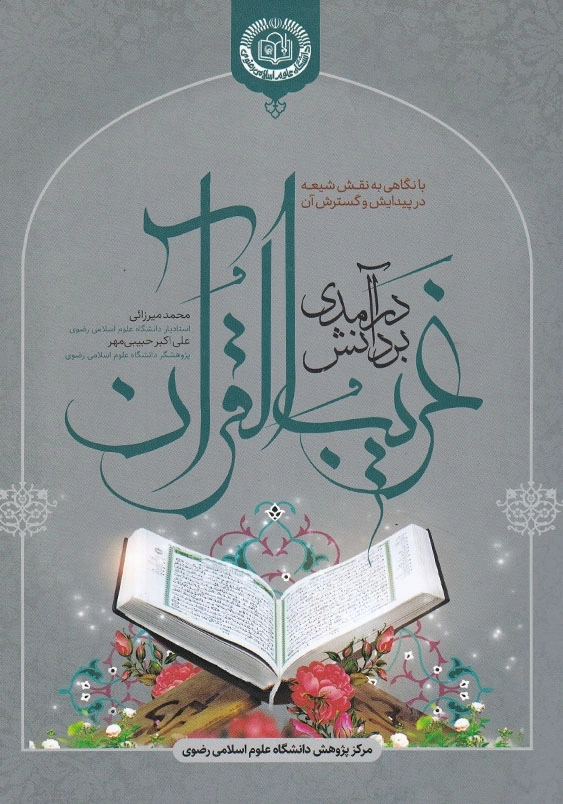 دانشگاه علوم اسلامی رضوی
با نگاهی به نقش شیعه
در پیدایش و گسترش آن
درآمدی
بر دانش
غریب القرآن
محمد میرزائی
استادیار دانشگاه علوم اسلامی رضوی
علی اکبر حبیبی‌مهر
پژوهشگر دانشگاه علوم اسلامی رضوی
مرکز پژوهش دانشگاه علوم اسلامی رضوی